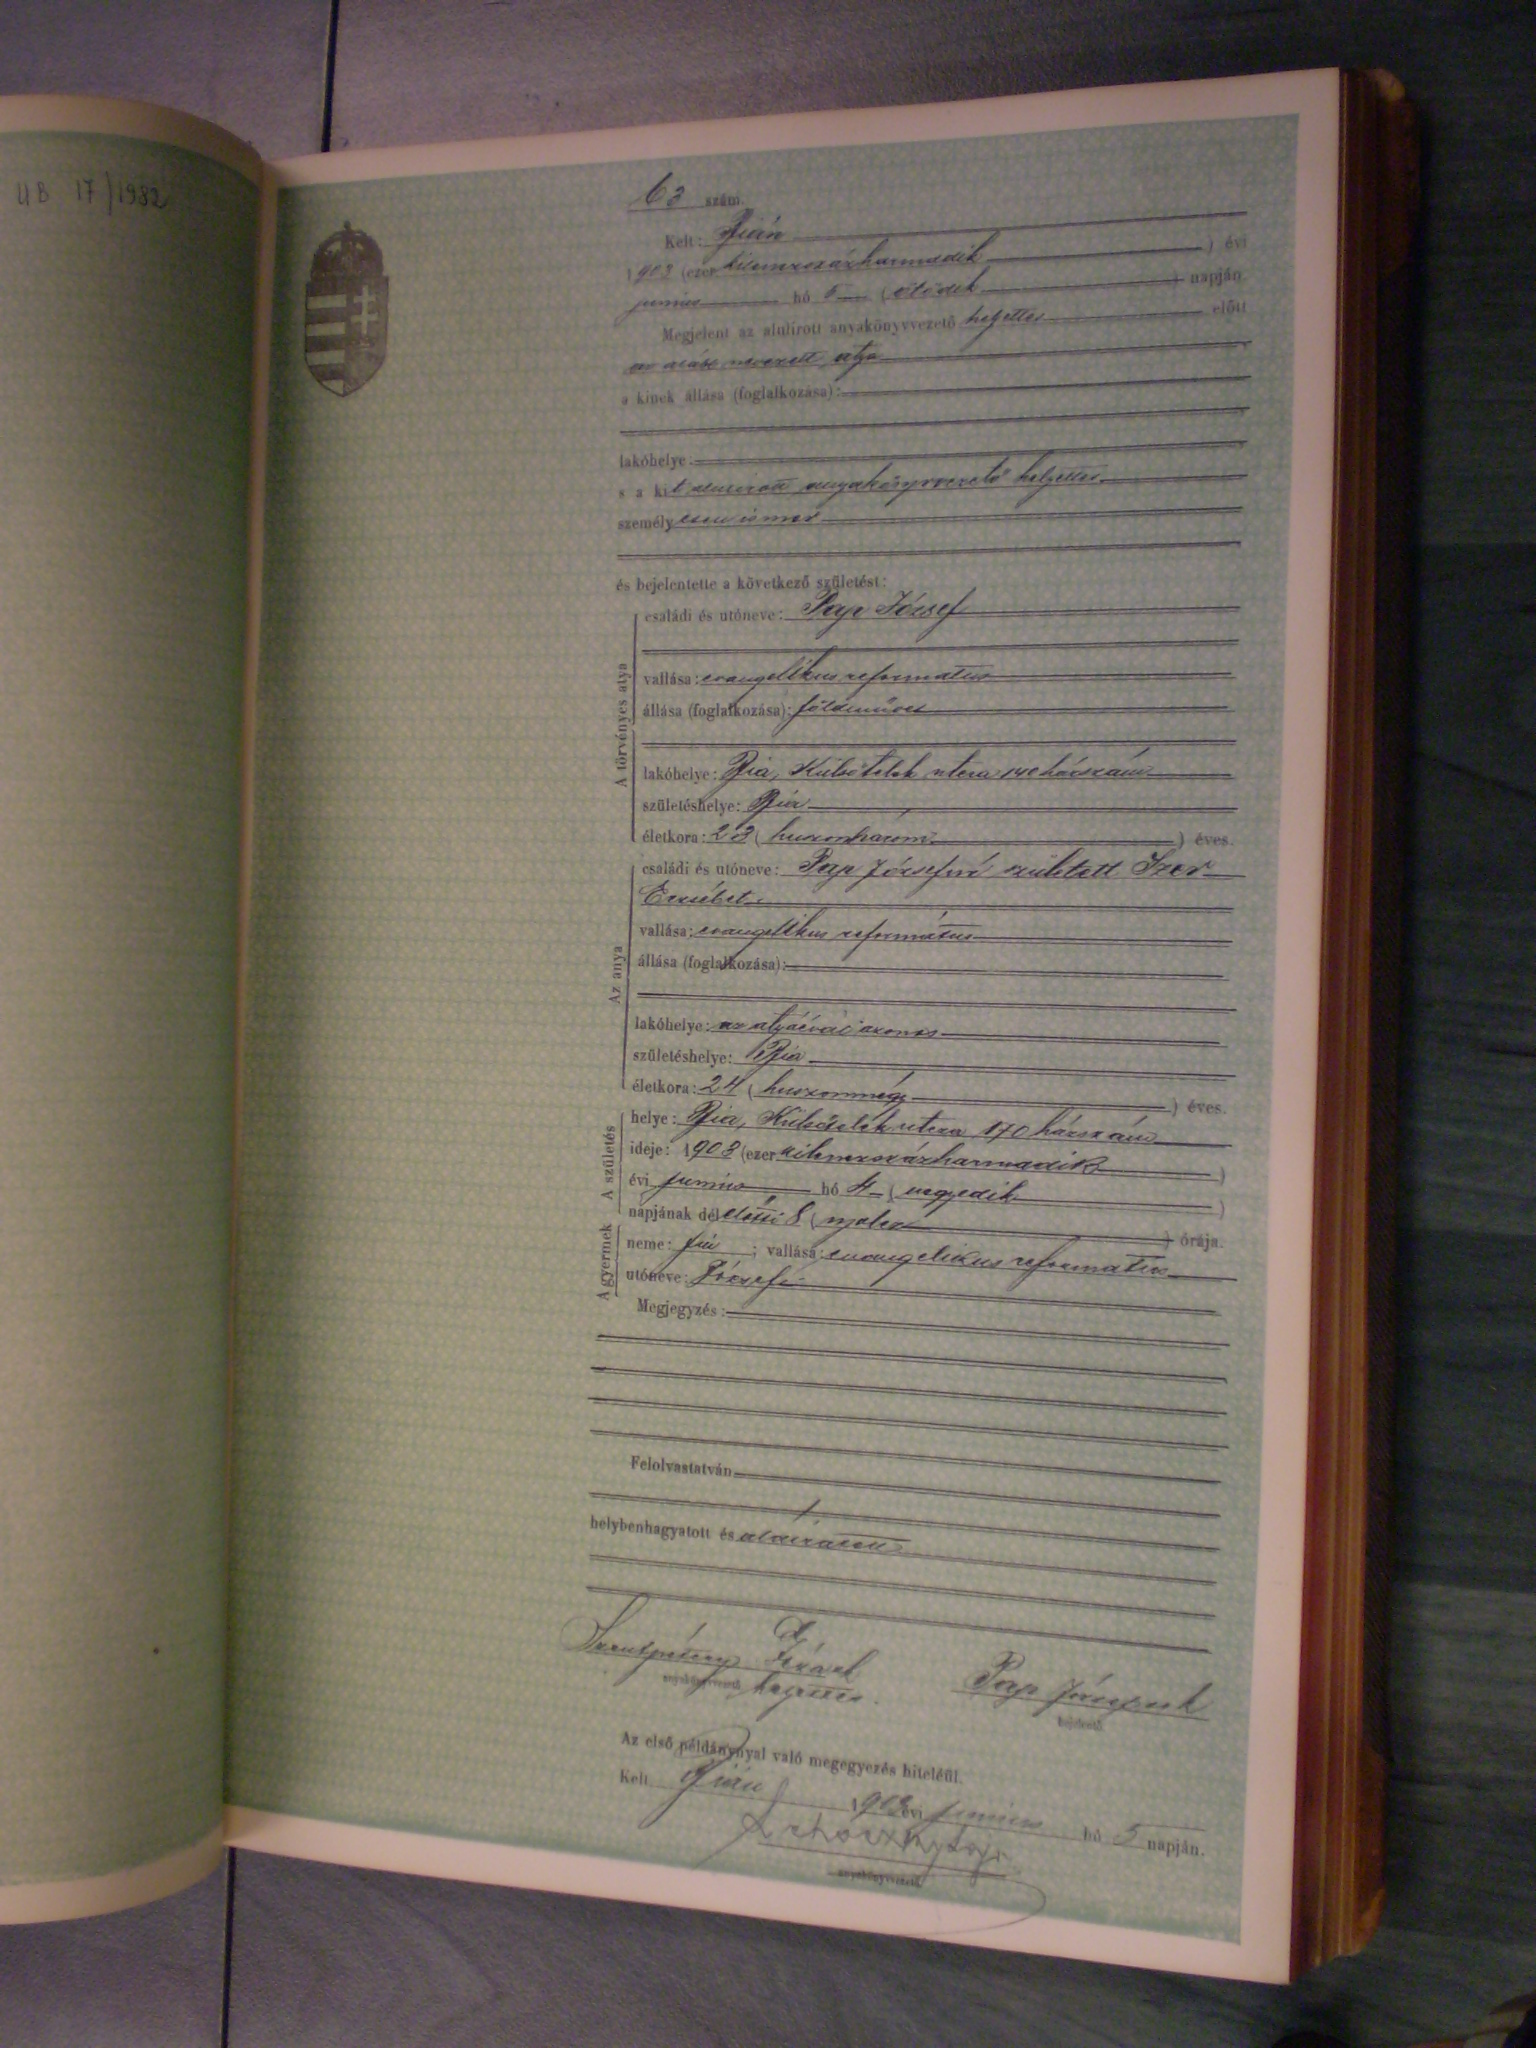 UB 17/1982
63 szám.
Kelt: Bián
1903 (ezerkilencszázharmadik) évi
junius hó 5 (ötödik) napján.
Megjelent az alulirott anyakönyvvezető helyettes előtt
az alább nevezett atya
a kinek állása (foglalkozása):
lakóhelye:
s a kit alulirott anyakönyvvezető helyettes
személyesen ismer
és bejelentette a következő születést:
A törvényes atya
családi és utóneve: Pap József
vallása: evangelikus reformatus
állása (foglalkozása): földműves
lakóhelye: Bia, Külsőtelek utcza házszám
születéshelye: Bia
életkora: 23 (huszonhárom) éves.
Az anya
családi és utóneve: Pap Józsefné született Szer
Erzsébet
vallása: evangelikus református
állása (foglalkozása):
lakóhelye: az atyáéval azonos
születéshelye: Bia
életkora: 24 (huszonnégy) éves.
A születés
helye: Bia, Külsőtelek utcza 170 házszám
ideje: 1903 (ezerkilenczszázharmadik)
évi junius hó 4 (negyedik)
napjának délelőtti 8 (nyolcz) órája.
A gyermek
neme: fiú; vallása: evangelikus reformatus
utóneve: József
Megjegyzés:
Felolvastatván
helybenhagyatott és aláiratott
Szentpétery
anyakönyvvezető helyettes.
Pap József
bejelentő
Az első példánynyal való megegyezés hiteléül.
Kelt Bián 1903 évi junius hó 5 napján.
anyakönyvvezető